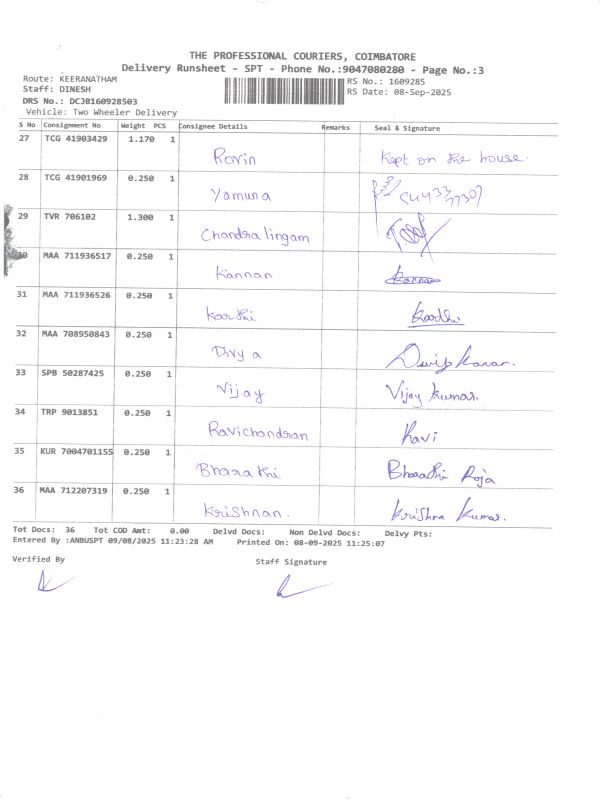 THE PROFESSIONAL COURIERS, COIMBATORE
Delivery Runsheet - SPT - Phone No.:9047080280 - Page No.:3
Route: KEERANATHAM RS No.: 1609285
Staff: DINESH RS Date: 08-Sep-2025
DRS No.: DCJB160928503
Vehicle: Two Wheeler Delivery
S No Consignment No Weight PCS Consignee Details Remarks Seal & Signature
27 TCG 41903429 1.170 1 Ravin Kept on the house.
28 TCG 41901969 0.250 1 Yamuna
29 TVR 706102 1.300 1 Chandralingam
30 MAA 711936517 0.250 1 Kannan Kannan
31 MAA 711936526 0.250 1 Karthi Karthi
32 MAA 708950843 0.250 1 Divya
33 SPB 50287425 0.250 1 Vijay Vijay Kumar.
34 TRP 9013851 0.250 1 Ravichandran Ravi
35 KUR 7004701155 0.250 1 Bharathi Bharathi Roja
36 MAA 712207319 0.250 1 Krishnan. Krishna Kumar.
Tot Docs: 36 Tot COD Amt: 0.00 Delvd Docs: Non Delvd Docs: Delvy Pts:
Entered By :ANBUSPT 09/08/2025 11:23:28 AM Printed On: 08-09-2025 11:25:07
Verified By Staff Signature